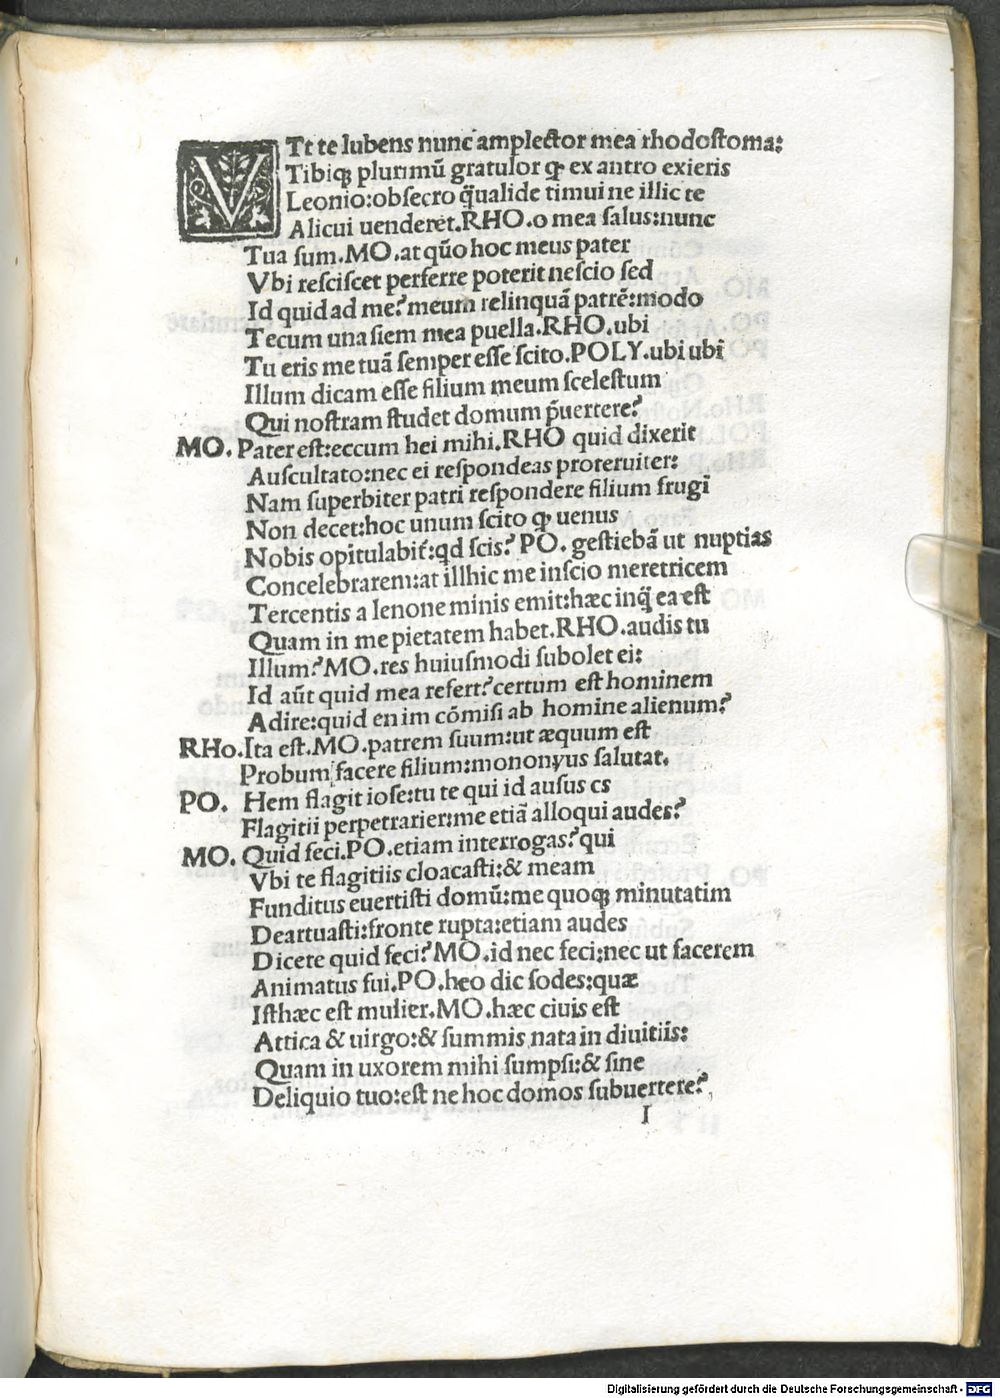 VTt te lubens nunc amplector mea rhodostoma:
Tibiqꝫ plurimũ gratulor ꝙ ex antro exieris
Leonio:obsecro q̃ualide timui ne illic te
Alicui uenderet.RHO.o mea salus:nunc
Tua sum.MO.at qũo hoc meus pater
Vbi resciscet perferre poterit nescio sed
Id quid ad me?meum relinquã patrẽ:modo
Tecum una siem mea puella.RHO.ubi
Tu eris me tuã semper esse scito.POLY.ubi ubi
Illum dicam esse filium meum scelestum
Qui nostram studet domum p̃uertere?
MO. Pater est:eccum hei mihi.RHO quid dixerit
Auscultato:nec ei respondeas proteruiter:
Nam superbiter patri respondere filium frugi
Non decet:hoc unum scito ꝙ uenus
Nobis opitulabit̃:qd scis? PO. gestiebã ut nuptias
Concelebrarem:at illhic me inscio meretricem
Tercentis a lenone minis emit:hæc inq̃ ea est
Quam in me pietatem habet.RHO.audis tu
Illum?MO.res huiusmodi subolet ei:
Id aũt quid mea refert?certum est hominem
Adire:quid enim cõmisi ab homine alienum?
RHo.Ita est.MO.patrem suum:ut æquum est
Probum facere filium:mononyus salutat.
PO. Hem flagitiose:tu te qui id ausus es
Flagitii perpetrarier:me etiã alloqui audes?
MO. Quid feci.PO.etiam interrogas?qui
Vbi te flagitiis cloacasti:& meam
Funditus euertisti domũ:me quoqꝫ minutatim
Deartuasti:fronte rupta:etiam audes
Dicere quid feci?MO.id nec feci:nec ut facerem
Animatus fui.PO.heo dic sodes:quæ
Isthæc est mulier.MO.hæc ciuis est
Attica & uirgo:& summis nata in diuitiis:
Quam in uxorem mihi sumpsi:& sine
Deliquio tuo:est ne hoc domos subuertere?
I
Digitalisierung gefördert durch die Deutsche Forschungsgemeinschaft - DFG